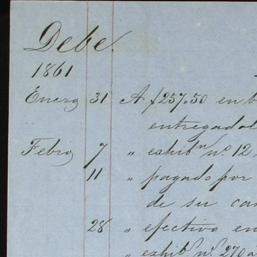 Debe.
1861
Enero 31 A $257.50 en b
entregado
Febro 7 " exhibn. no. 12
11 " pagado por
de su ca
28 " efectivo en
exhibn. no. 270